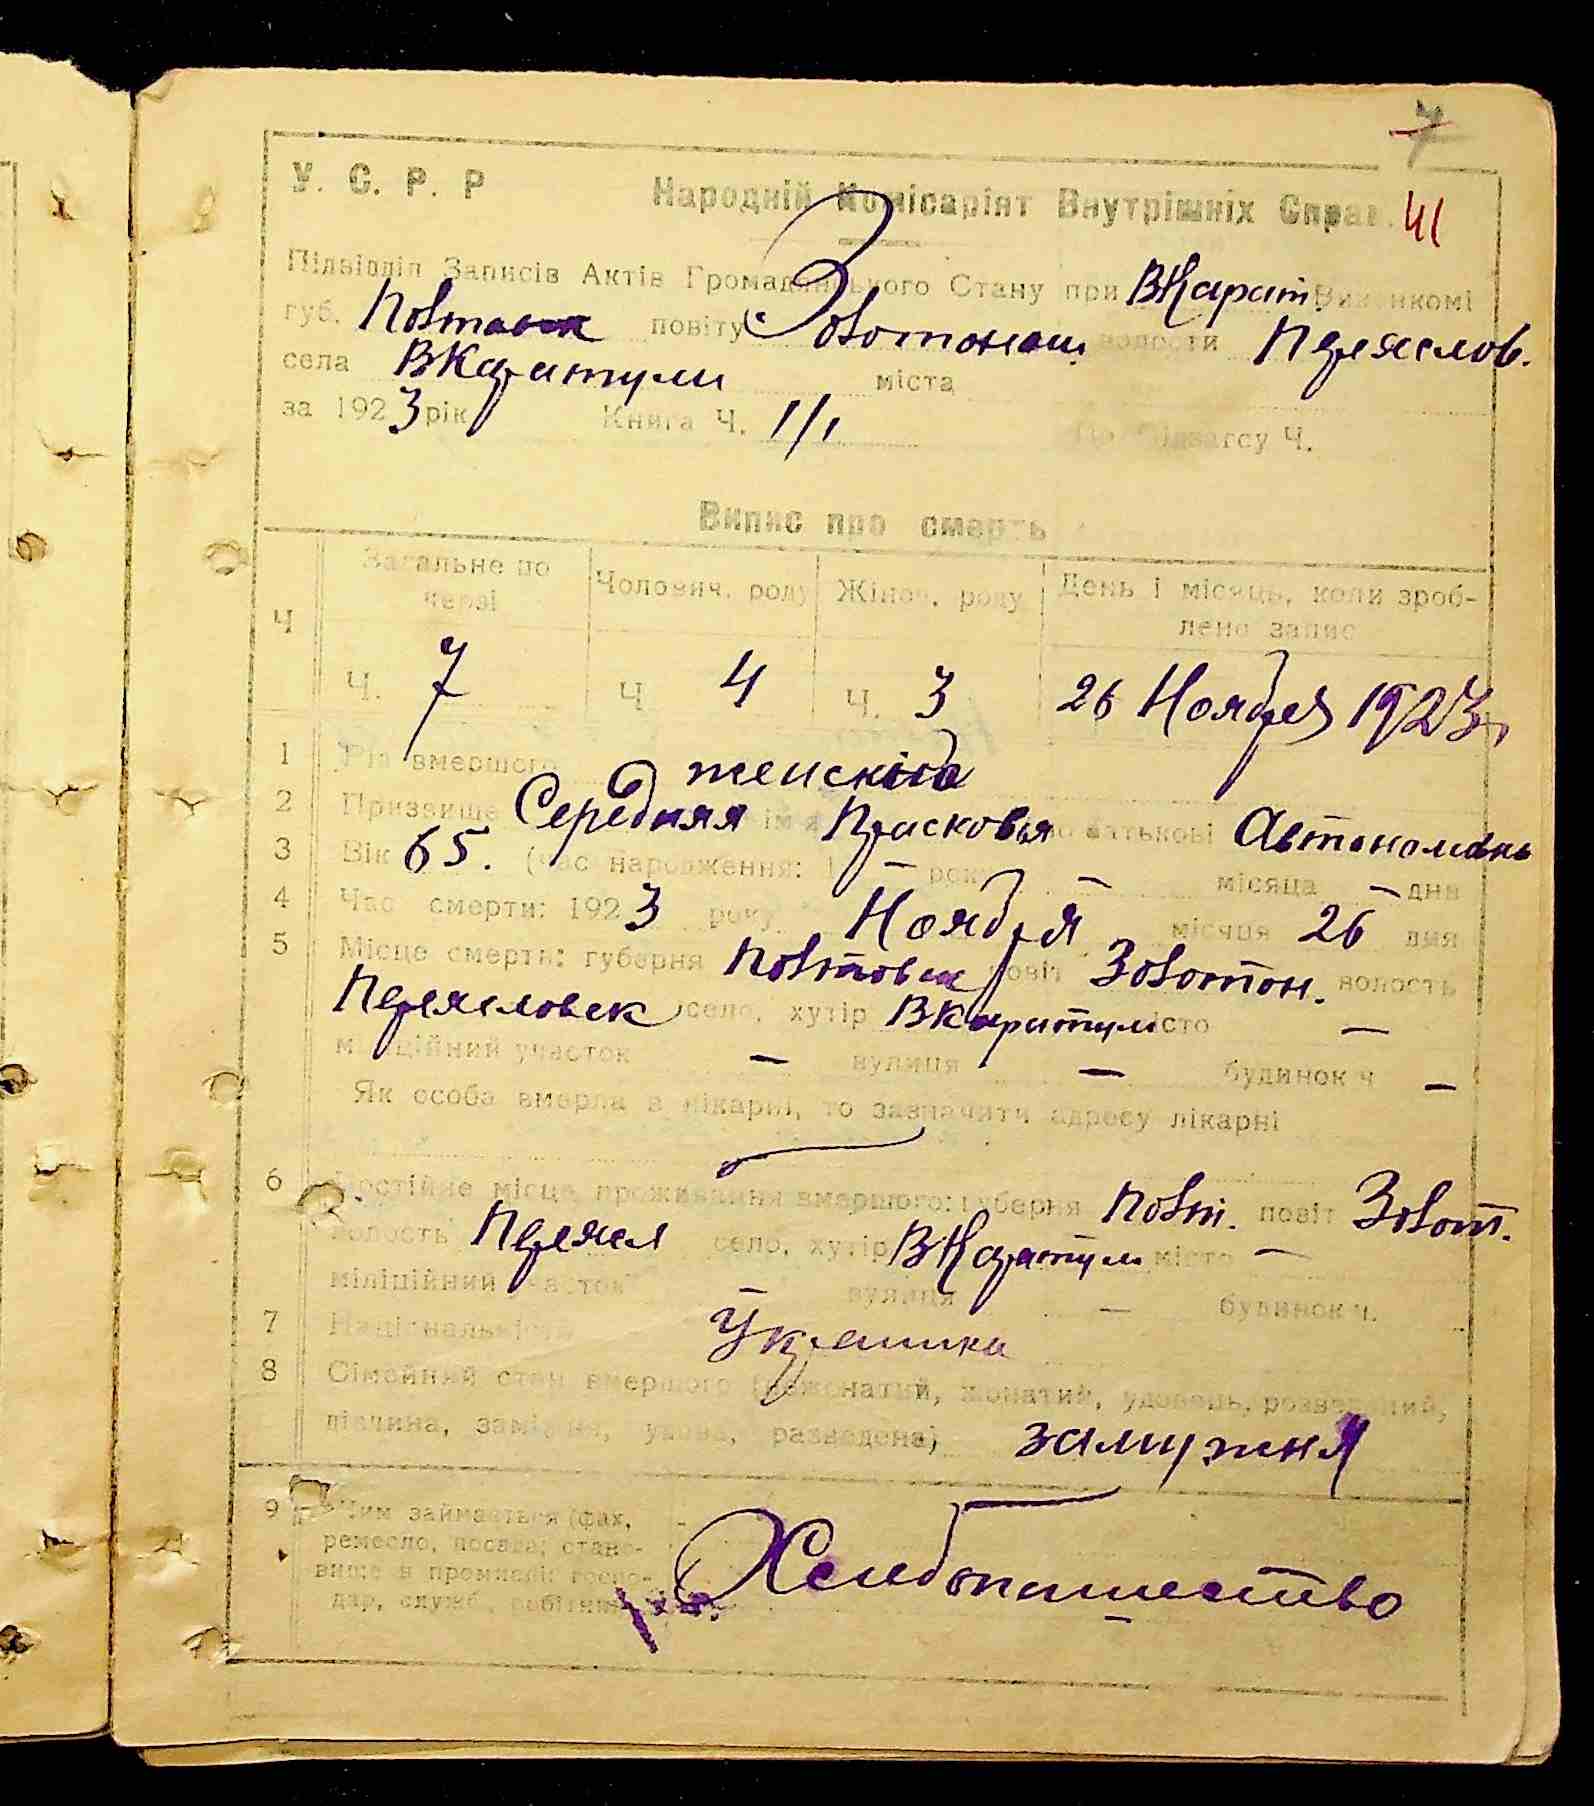 7
У. С. Р. Р Народній Комісаріят Внутрішніх Справ. 41
Підвідділ Записів Актів Громадянського Стану при ВКарат. Виконкомі
губ. Полтавск повіту Золотонош. волости Переяслов.
села ВКаратули міста
за 1923 рік Книга Ч. 1/1 По Підзагсу Ч.
Випис про смерть
Ч Загальне по черзі Чоловіч. роду Жіноч. роду День і місяць, коли зроб-
лено запис
Ч. 7 Ч 4 Ч. 3 26 Ноября 1923
1 Рід вмершого женский
2 Призвище Середняя ім'я Прасковья по батькові Автономовн
3 Вік 65. (час народження: 1 — року — місяца — дня
4 Час смерти: 1923 року Ноября місяця 26 дня
5 Місце смерти: губерня Полтовск повіт Золотон. волость
Переясловск село, хутір ВКаратули місто —
міліційний участок — вулиця — будинок ч —
Як особа вмерла в лікарні, то зазначити адресу лікарні
6 Постійне місце проживання вмершого: губерня Полт. повіт Золот.
волость Переясл село, хутір ВКаратули місто —
міліційний участок вулиця — будинок ч.
7 Національність Украинка
8 Сімейний стан вмершого (нежонатий, жонатий, удовець, розведений,
дівчина, заміжня, удова, разведена) замужня
9 Чим займається (фах,
ремесло, посада; стано-
вище в промислі: госпо-
дар, служб., робітник
Хлебопашество